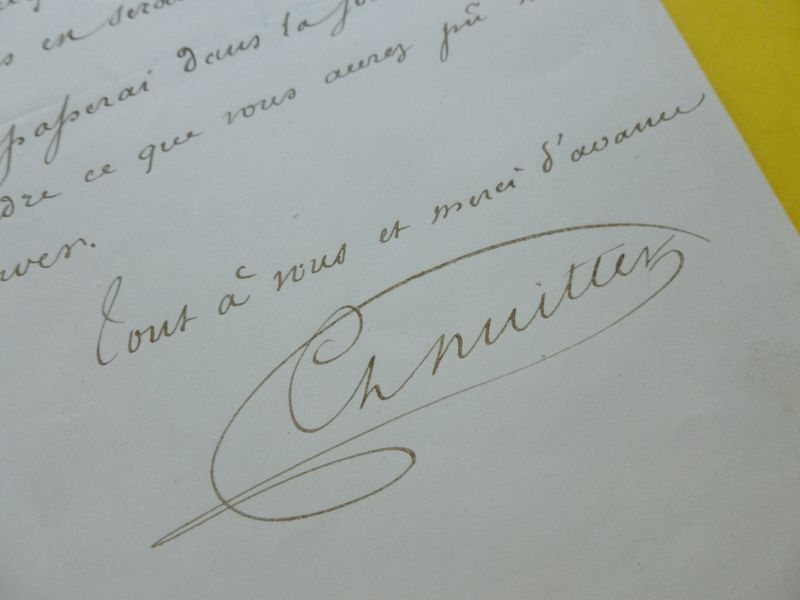 s en serai
passerai dans la jou
dre ce que vous aurez pû
uver.
Tout à vous et merci d'avance
Ch Nuitter